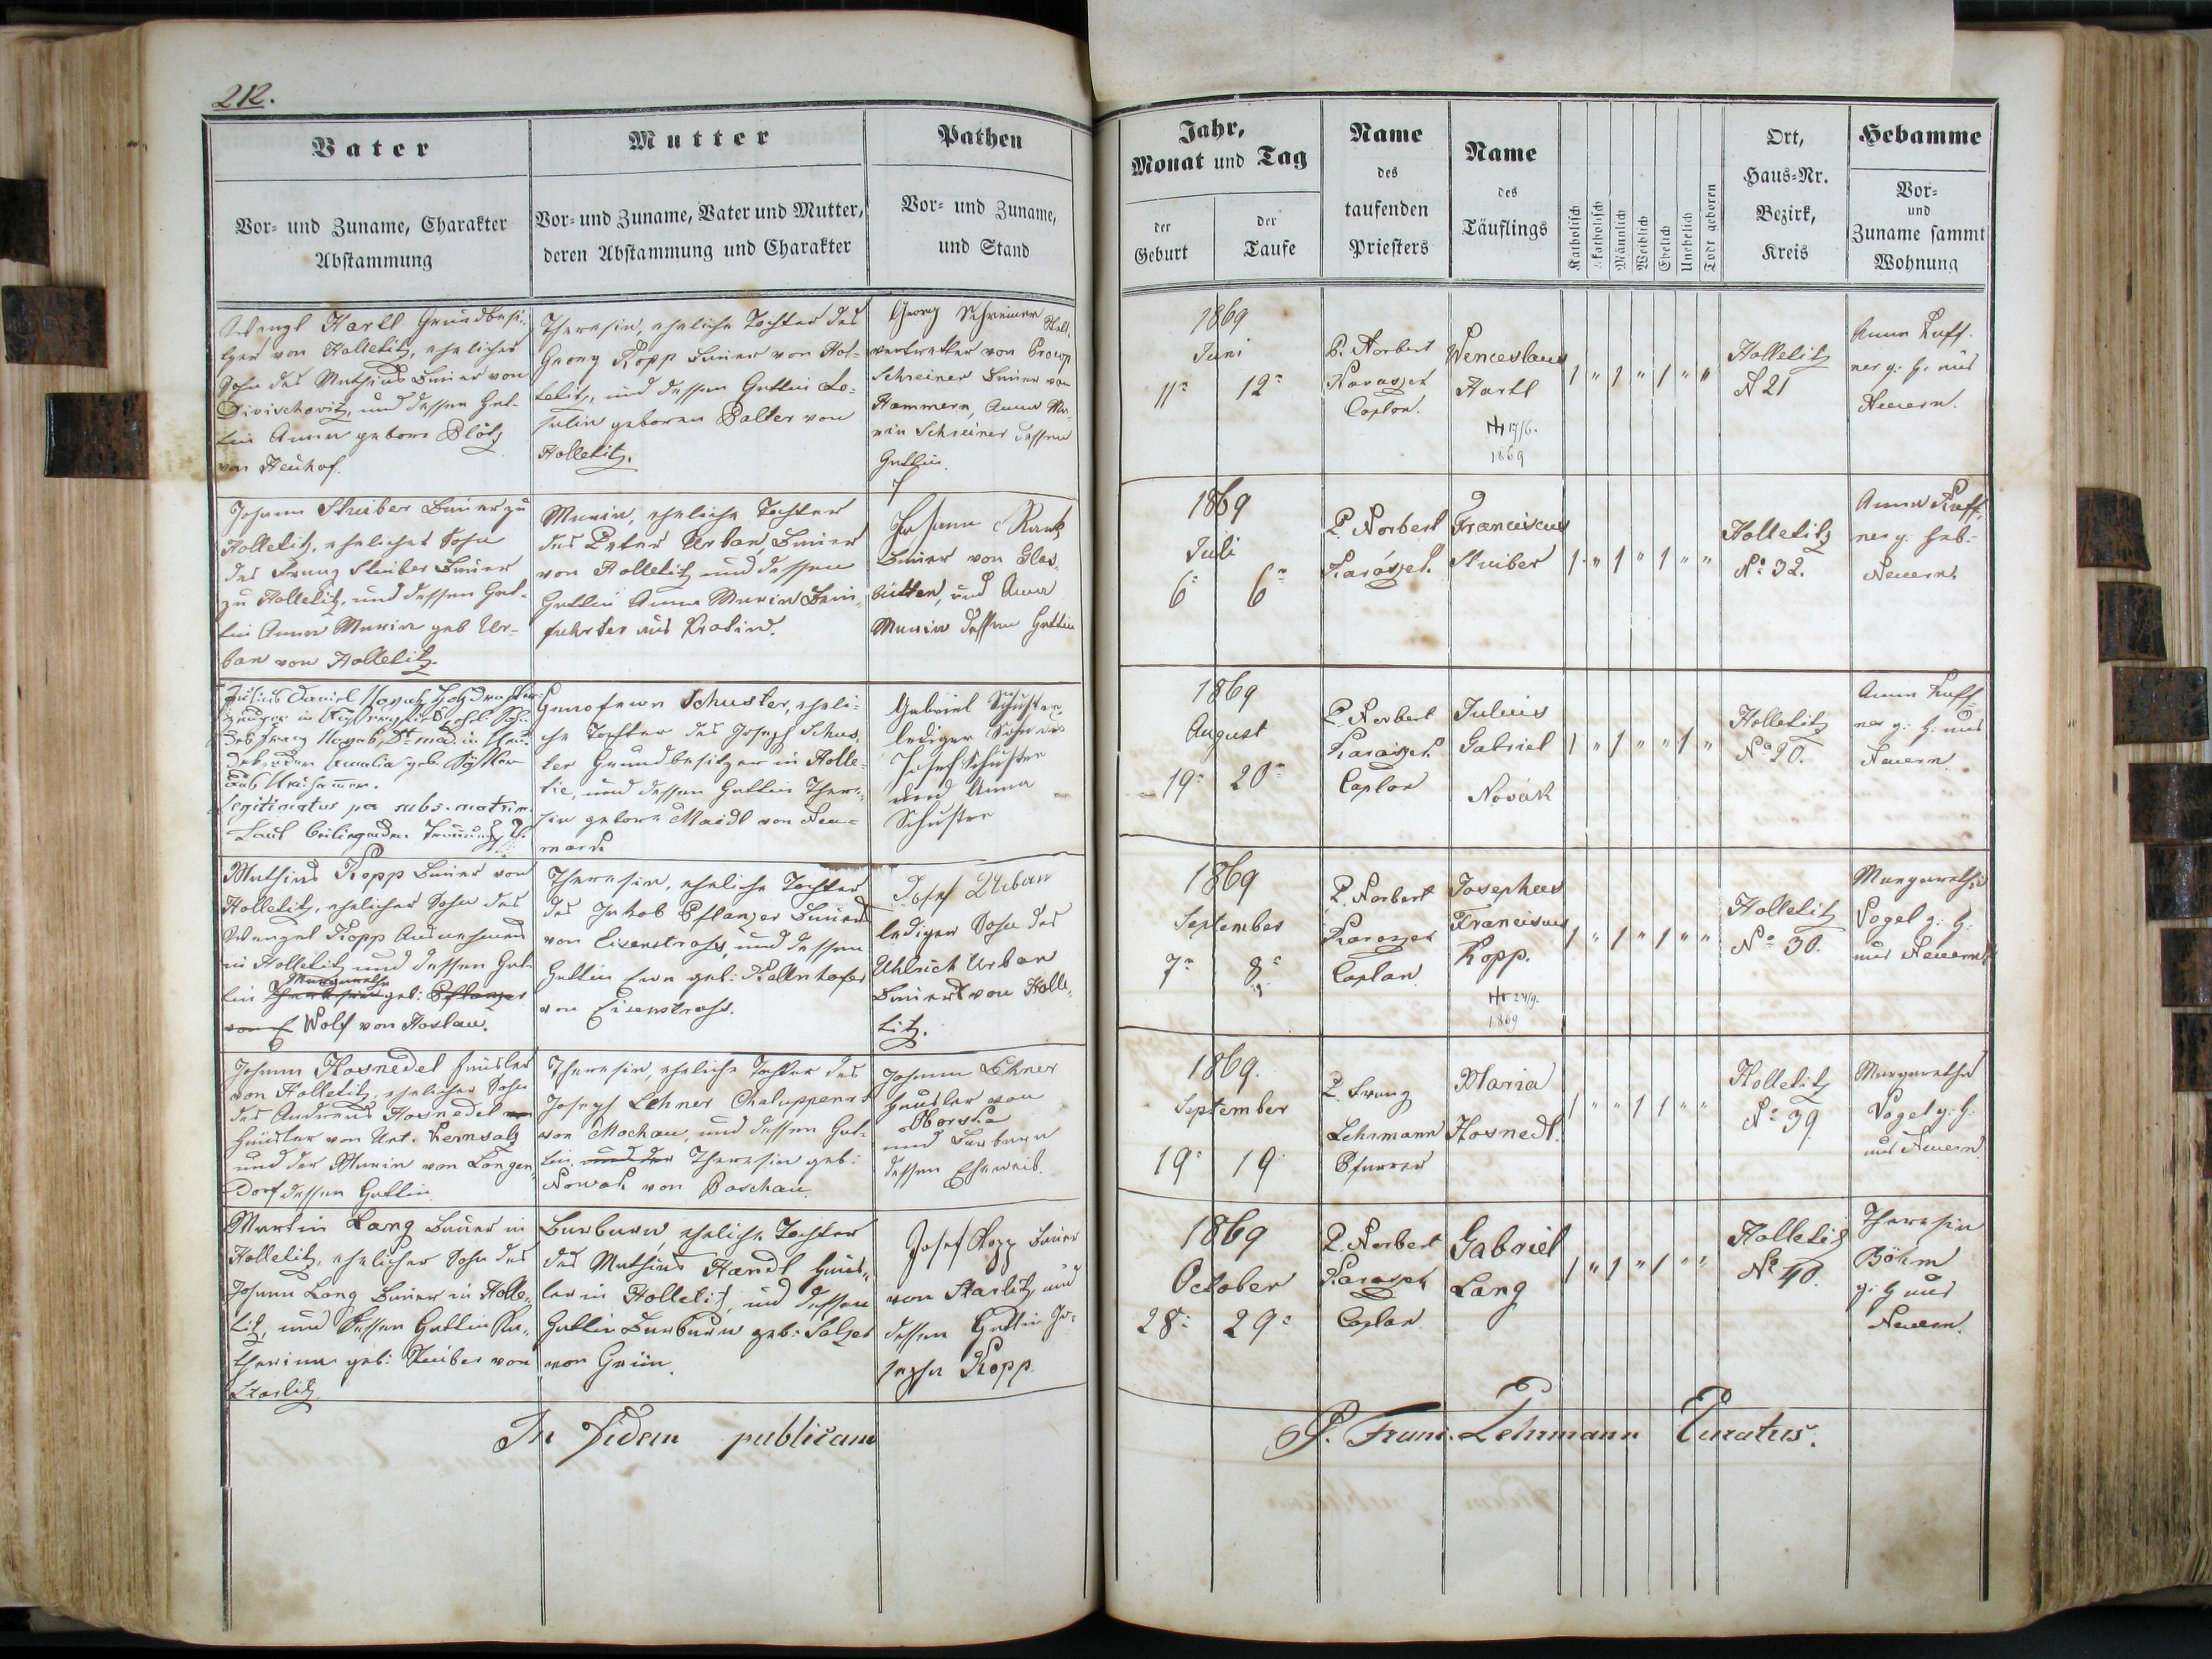 212.
Vater
Vor- und Zuname, Charakter
Abstammung
Mutter
Vor- und Zuname, Vater und Mutter,
deren Abstammung und Charakter
Pathen
Vor- und Zuname,
und Stand
Wenzl Hartl Grundbesi-
tzer von Holletitz, ehelicher
Sohn des Mathias Bauer von
Divischovitz, und dessen Gat-
tin Anna geborne Plötz
von Neuhof.
Theresia, eheliche Tochter des
Georg Kopp Bauer von Hol-
letitz, und dessen Gattin
geboren Palter von
Holletitz.
Georg Schreiner Stell-
vertretter von Prokop
Schreiner Bauer von
Hammern, Anna Ma-
ria Schreiner dessen
Gattin.
Johann Stuiber Bauer zu
Holletitz, ehelicher Sohn
des Franz Stuiber Bauer
zu Holletitz, und dessen Gat-
tin Anna Maria geb Ur-
ban von Holletitz.
Maria, eheliche Tochter
des Peter Urban, Bauer
von Holletitz und dessen
Gattin Anna Maria
aus Krotiw.
Johann Rank
Bauer von Glas-
hütten, und Anna
Maria dessen Gattin
Julius Daniel Novak
in
des Franz Novak, Dr. med. in
Amalia geb.
legitimatus pr subs. matrim.
Laut beiliegenden
Genofewa Schuster, eheli-
che Tochter des Joseph Schus-
ter Grundbesitzer in Holle-
titz, und dessen Gattin There-
sia geborne Maidl von Neu-
mark
Gabriel Schuster,
lediger Sohn des
Josef Schuster
und Anna
Schuster
Mathias Kopp Bauer von
Holletitz, ehelicher Sohn des
Wenzel Kopp Ausnehmer
in Holletitz und dessen Gat-
Margaretha
tin Theresia geb: Pflanzer
von E Wolf von Hoslau.
Theresia, eheliche Tochter
des Jakob Pflanzer Bauers
von Eisenstrass, und dessen
Gattin Ewa geb: Kollnhofer
von Eisenstrass.
Josef Urban
lediger Sohn des
Uhlrich Urban
Bauers von Holle-
titz.
Johann Hosnedel Häusler
von Holletitz, ehelicher Sohn
des Andreas Hosnedel
Häusler von Unt. Kernsalz
und der Maria von Langen-
dorf dessen Gattin
Theresia, eheliche Tochter des
Joseph Lehner Chaluppners
von Mochau, und dessen Gat-
tin und der Theresia geb:
Nowak von Paschau.
Johann Lehner
Häusler von
Oborska
und Barbara
dessen Eheweib.
Martin Lang Bauer in
Holletitz, ehelicher Sohn des
Johann Lang Bauer in Holle-
titz, und dessen Gattin Ka-
tharina geb: Stuiber von
Starlitz
Barbara, eheliche Tochter
des Mathias Handl Häus-
ler in Holletitz, und dessen
Gattin Barbara geb: Salzer
von Grün.
Josef Kopp Bauer
von Starlitz und
dessen Gattin Jo-
sepha Kopp.
In Fidem publicam
Jahr,
Monat und Tag
der
Geburt
der
Taufe
Name
des
taufenden
Priesters
Name
des
Täuflings
Katholisch
Akatholisch
Männlich
Weiblich
Ehelich
Unehelich
Todt geboren
Ort,
Haus-Nr.
Bezirk,
Kreis
Hebamme
Vor-
und
Zuname sammt
Wohnung
1869
Juni
11 12
P. Norbert
Karaszek
Caplan.
Wenceslaus
Hartl
17/6.
1869
1 " 1 " 1 " "
Holletitz
N 21
Anna Kuff-
ner g: H: aus
Neuern.
1869
Juli
6 6
P. Norbert
Karászek.
Franciscus
Stuiber
1 " 1 " 1 " "
Holletitz
No 32.
Anna Kuff-
ner g. Heb.
Neuern.
1869
August
19 20
P. Norbert
Karaszek
Caplan
Julius
Gabriel
Novák
1 " 1 " " 1 "
Holletitz
No 20.
Anna Kuff-
ner g: H: aus
Neuern.
1869
September
7 8
P. Norbert
Karaszek
Caplan.
Josephus
Franciscus
Kopp.
24/9.
1869
1 " 1 " 1 " "
Holletitz
No 30.
Margaretha
Vogel g: H:
aus Neuern
1869.
September
19 19
P. Franz
Lehrmann
Pfarrer
Maria
Hosnedl.
1 " " 1 1 " "
Holletitz
No 39.
Margaretha
Vogel g: H:
aus Neuern.
1869
October
28 29
P. Norbert
Karaszek
Caplan.
Gabriel
Lang
1 " 1 " 1 " "
Holletitz
No 40.
Theresia
Böhm
g: H aus
Neuern.
P. Franc. Lehrmann Curatus.